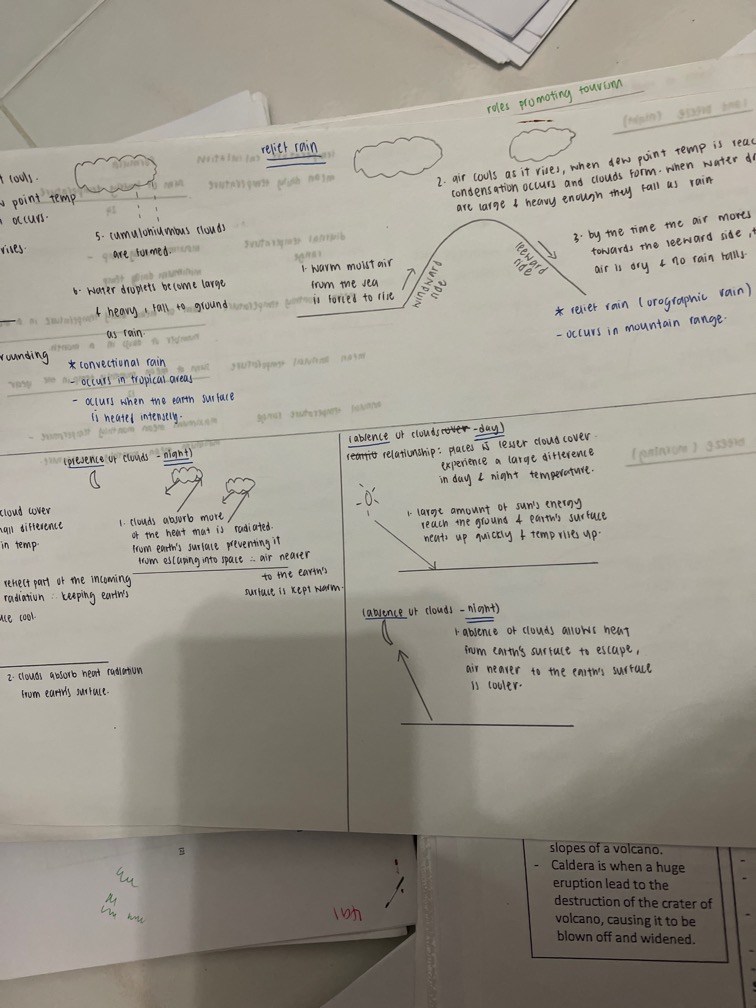 roles promoting tourism
relief rain
cools.
point temp
occurs.
rises.
5. cumuloniumbus clouds
are formed.
6. water droplets become large
& heavy, & fall to ground
as rain.
rounding
* convectional rain
- occurs in tropical areas
- occurs when the earth surface
is heated intensely.
1. warm moist air
from the sea
is forced to rise
windward
side
leeward
side
2. air cools as it rises, when dew point temp is
condensation occurs and clouds form. when water
are large & heavy enough they fall as rain
3. by the time the air moves
towards the leeward side,
air is dry & no rain falls.
* relief rain (orographic rain)
- occurs in mountain range.
(presence of clouds - night)
cloud cover
difference
in temp.
1. clouds absorb more
of the heat that is radiated
from earth's surface preventing it
from escaping into space ∴ air nearer
to the earth's
surface is kept warm.
reflect part of the incoming
radiation ∴ keeping earth's
cool.
2. clouds absorb heat radiation
from earth's surface.
(absence of clouds cover - day)
relationship: places w lesser cloud cover
experience a large difference
in day & night temperature.
1. large amount of sun's energy
reach the ground & earth's surface
heats up quickly & temp rises up.
(absence of clouds - night)
1. absence of clouds allows heat
from earth's surface to escape,
air nearer to the earth's surface
is cooler.
slopes of a volcano.
- Caldera is when a huge
eruption lead to the
destruction of the crater of
volcano, causing it to be
blown off and widened.